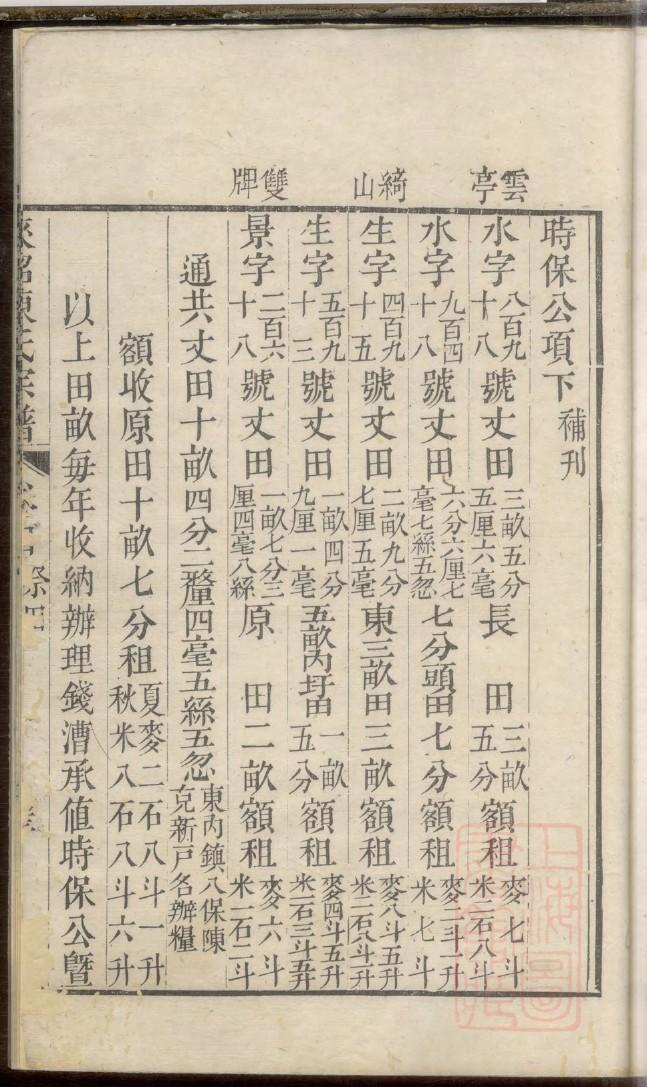 雲亭
綺山
雙牌
時保公項下補刊
水字八百九十八號丈田三畝五分五厘六毫長田三畝五分額租麥七斗米二石八斗
水字九百四十八號丈田六分六厘七毫七絲五忽七分頭田七分額租麥二斗一升米七斗
生字四百九十五號丈田二畝九分七厘五毫東三畝田三畝額租麥八斗五升米二石八斗三升
生字五百九十三號丈田一畝四分九厘一毫五畝內圩田一畝五分額租麥四斗五升米一石三斗五升
景字二百六十八號丈田一畝七分三厘四毫八絲原田二畝額租麥六斗米一石二斗
通共丈田十畝四分二釐四毫五絲五忽東內鎮八保陳克新戶名辦糧
額收原田十畝七分租夏麥二石八斗一升秋米八石八斗六升
以上田畝每年收納辦理錢漕承值時保公曁
陳氏宗譜